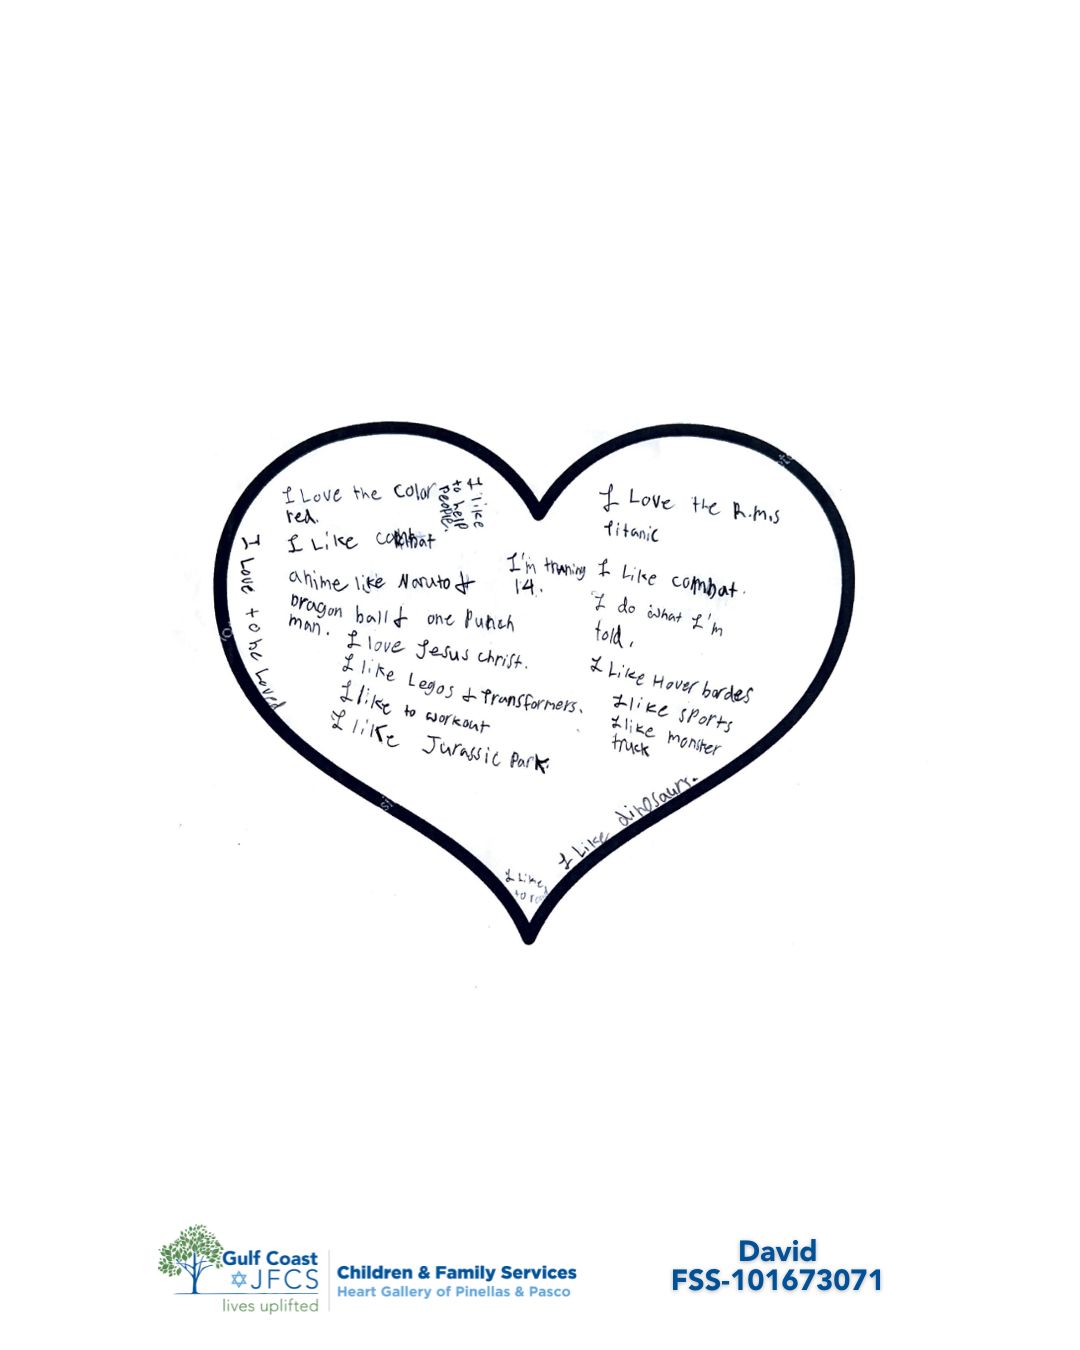 I Love the color
red.
I like
to help
people.
I Like combat
anime like Naruto &
Dragon ball & one Punch
man.
I love Jesus christ.
I like Legos & Transformers.
I like to workout
I like Jurassic Park.
I Love to be Loved
I'm truning
14.
I Love the R.M.S
titanic
I Like combat.
I do what I'm
told.
I Like Hover bordes
I like sports
I like monster
truck
I Like dinosaurs.
I Like
to
Gulf Coast
JFCS
lives uplifted
Children & Family Services
Heart Gallery of Pinellas & Pasco
David
FSS-101673071